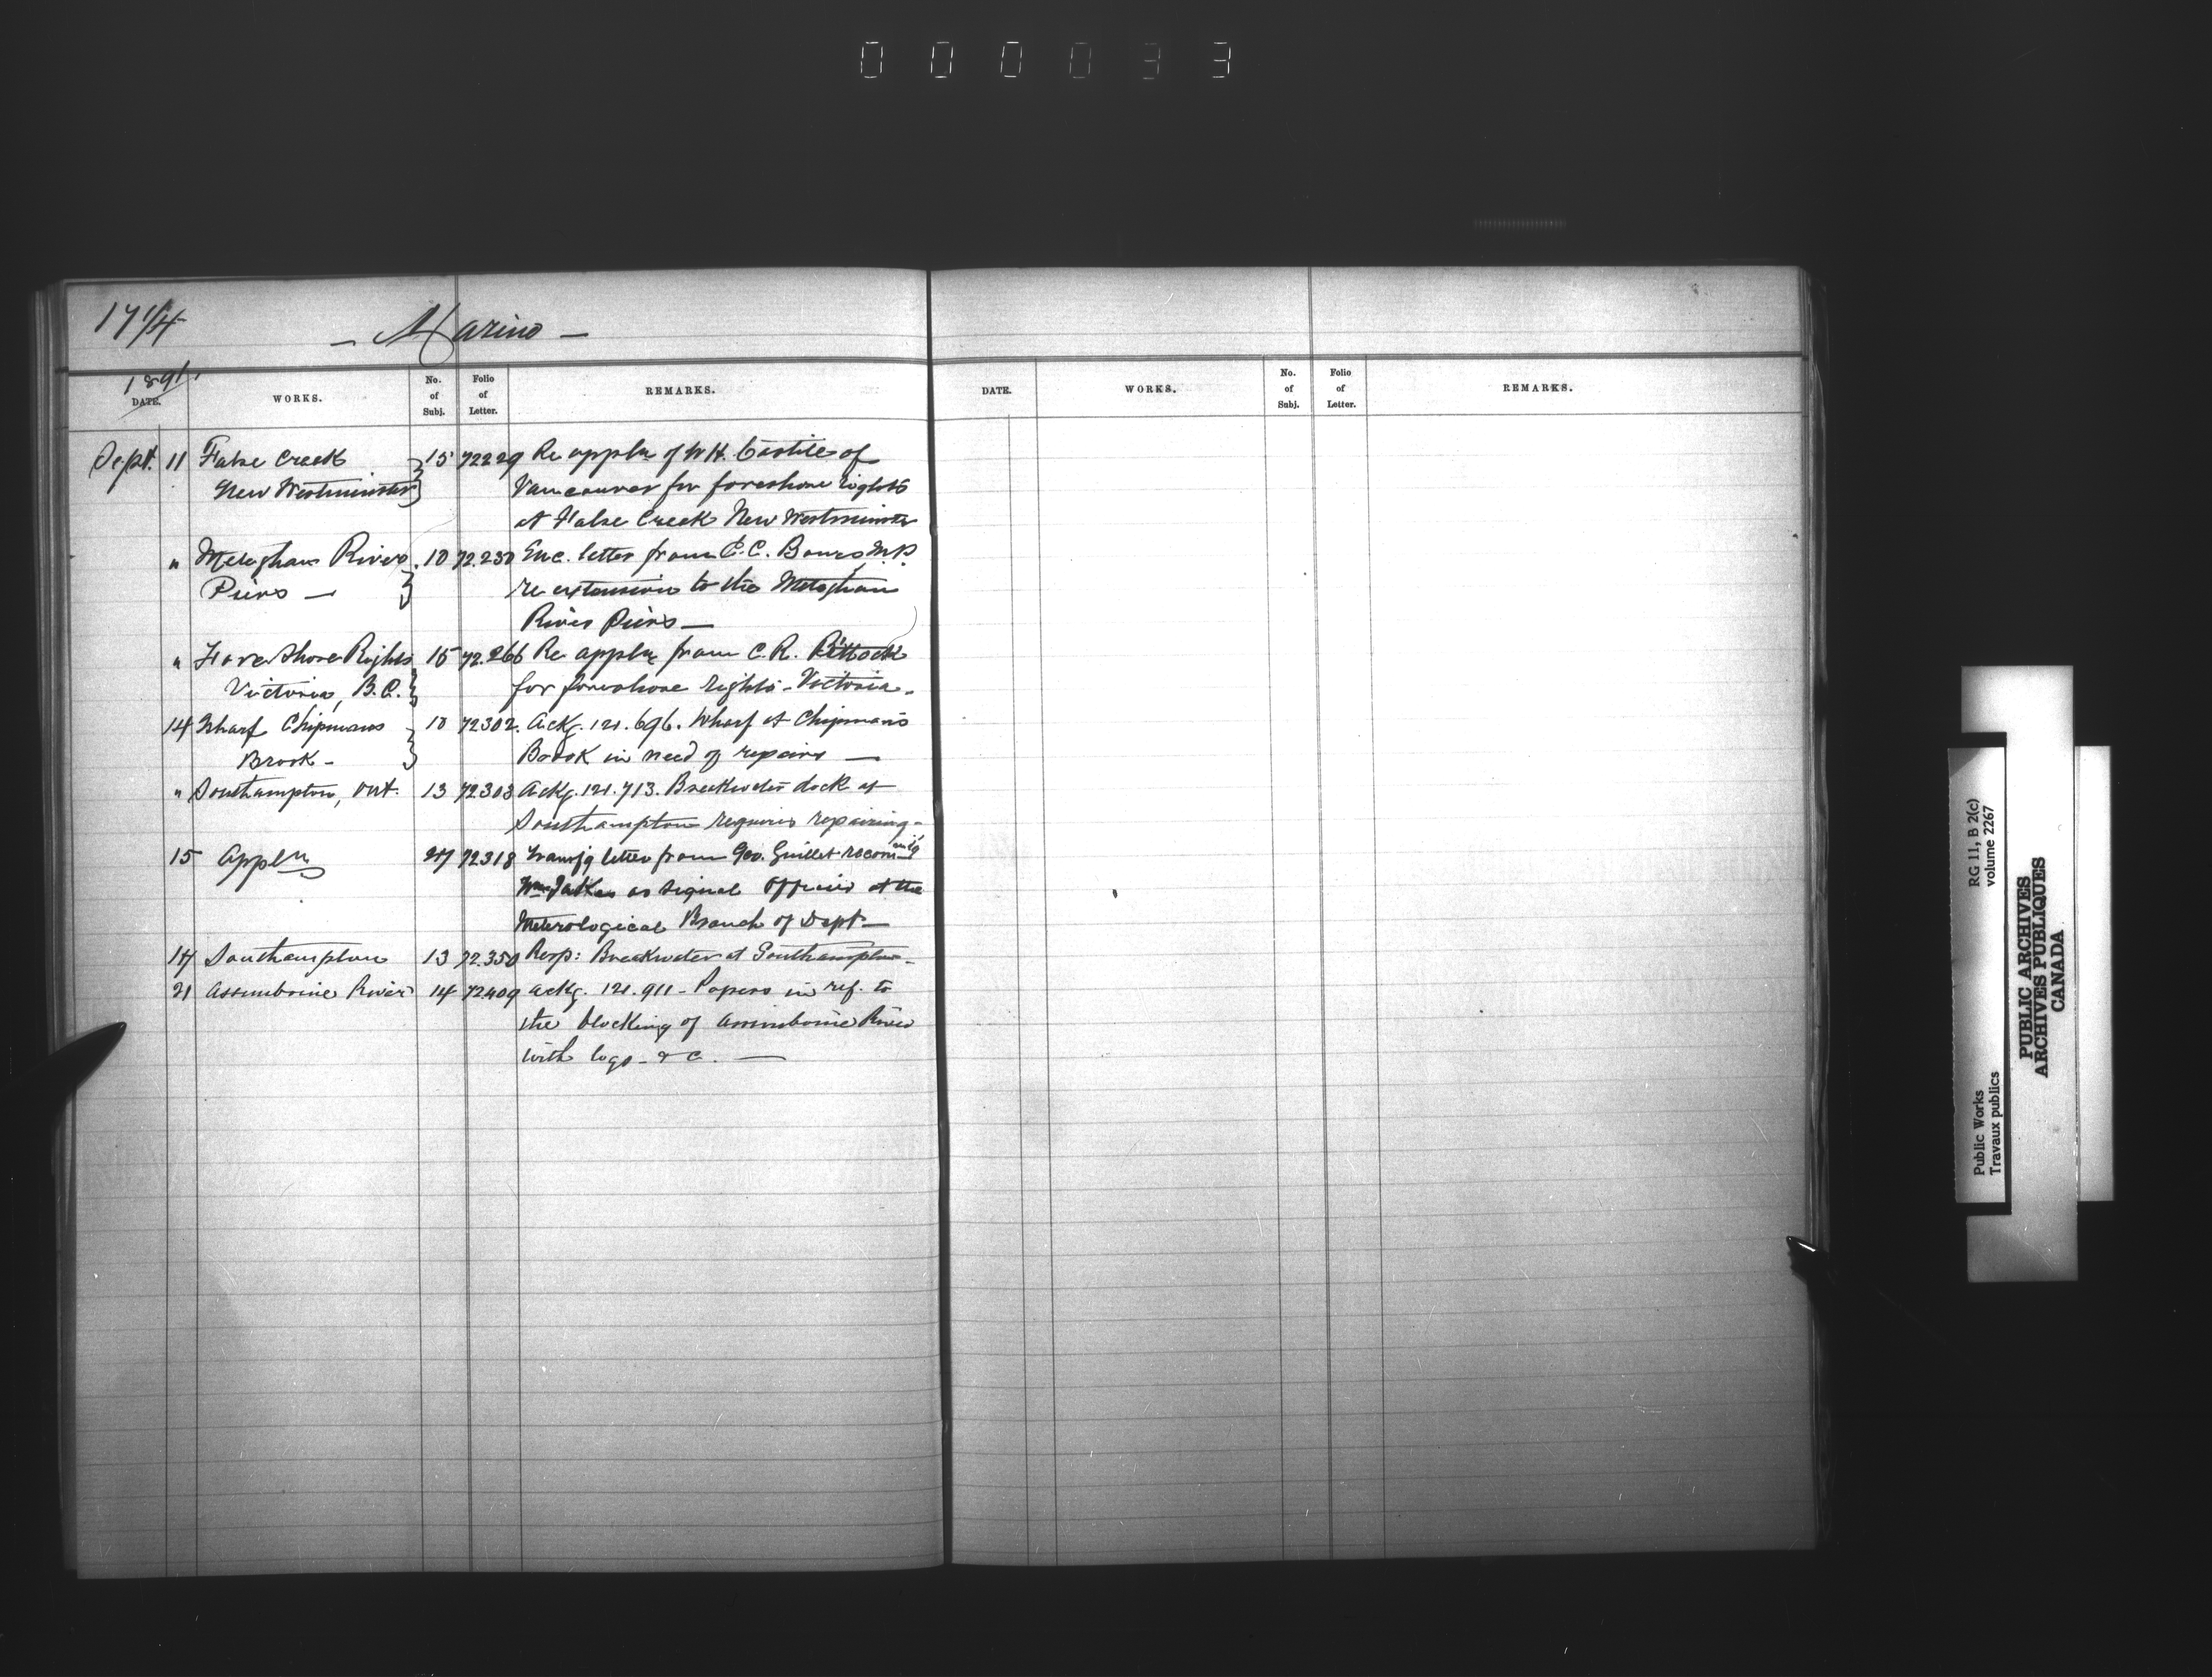 0 0 0 0 3 3
17 1/4
— Marine —
1891.
DATE. WORKS. No. of Subj. Folio of Letter. REMARKS.
DATE. WORKS. No. of Subj. Folio of Letter. REMARKS.
Sept. 11 False Creek 15 72229 Re appln of W.H. of
New Westminster Vancouver for foreshore rights
at False Creek New Westminster
" Meteghan River 10 72.230 Enc. letter from M.P.
Piers — re extension to the Meteghan
River Piers —
" Fore shore Rights 15 72.266 Re appln from C.R. Pittock
Victoria, B.C. for foreshore rights - Victoria -
14 Wharf Chipmans 10 72302. Ackg. 121.696. Wharf at Chipman's
Brook - Brook in need of repairs —
" Southampton, Ont. 13 72303 Ackg. 121.713. Breakwater dock at
Southampton requires repairing -
15 Appln 27 72318 Transfg letter from Geo. Guillet recomending
Wm as Signal Officer at the
Meterological Branch of Dept —
17 Southampton 13 72.350 Resp: Breakwater at Southampton -
21 Assiniboine River 14 72409 Ackg. 121.911 - Papers in ref. to
the blocking of Assiniboine River
with logs - &c. —
RG 11, B 2(c)
volume 2267
Public Works
Travaux publics
PUBLIC ARCHIVES
ARCHIVES PUBLIQUES
CANADA